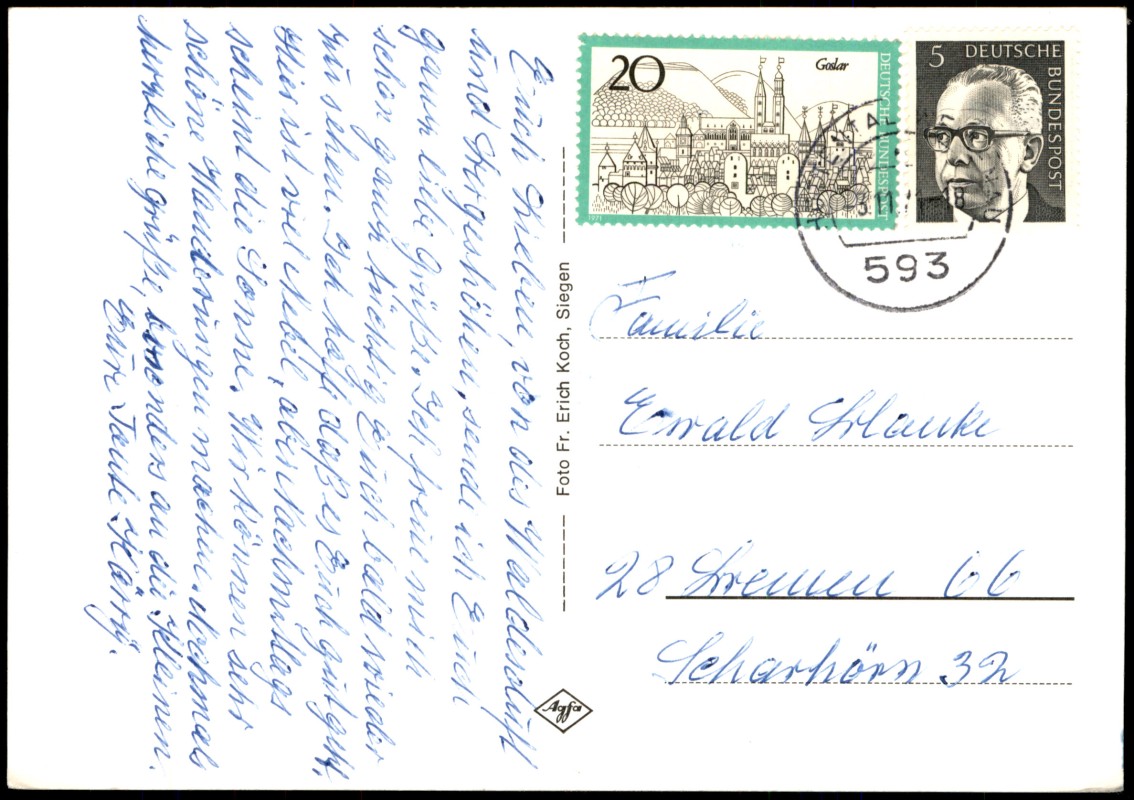 Euch Lieben, von des Waldesduft
und Bergeshöhen, sende ich Euch
ganz liebe Grüße. Ich freue mich
schon ganz tüchtig Euch bald wieder
zu sehen. Ich hoffe daß es Euch gut geht.
Hier ist viel Nebel, aber nachmittags
scheint die Sonne. Wir können sehr
schöne Wanderungen machen. Nochmals
herzliche Grüße, besonders an die Kleinen.
Eure Tante
Foto Fr. Erich Koch, Siegen
Agfa
20
Goslar
DEUTSCHE BUNDESPOST
1971
5 DEUTSCHE
BUNDESPOST
593
Familie
Ewald
28 Bremen 66
Scharhörn 32